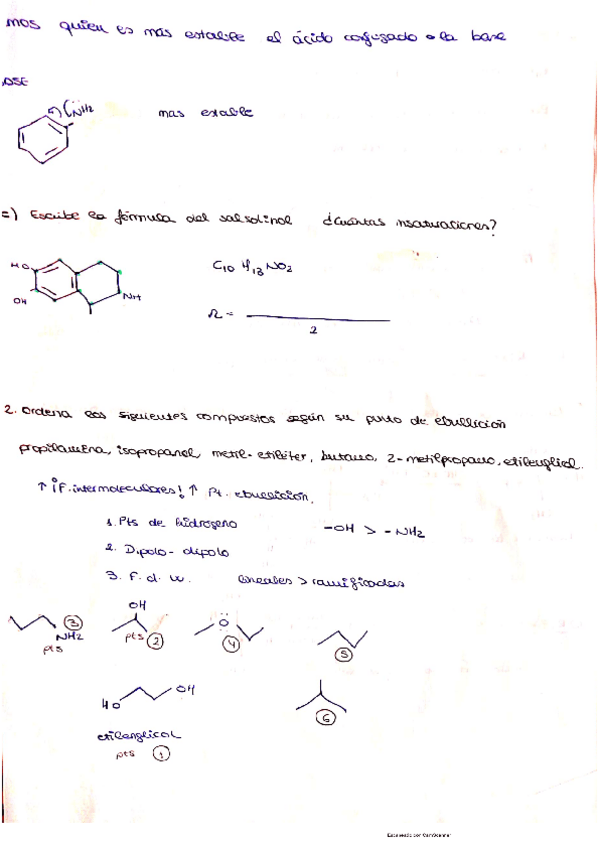 mos quien es mas estable el ácido conjugado o la base
BSE
NH2
mas estable
=) Escribe la fórmula del salsolinol ¿cuántas insaturaciones?
HO
OH
NH
C10 H13 NO2
Ω =
2
2. Ordena los siguientes compuestos según su punto de ebullición
propilamina, isopropanol, metil-etiléter, butano, 2-metilpropano, etilenglicol.
↑ ¡F. intermoleculares! ↑ Pt. ebullición.
1. Pts de hidrogeno
-OH > -NH2
2. Dipolo-dipolo
3. F. d. W. lineales > ramificadas
NH2
pts
3
OH
pts 2
O
4
5
HO
OH
6
etilenglicol
pts 1
Escaneado con CamScanner